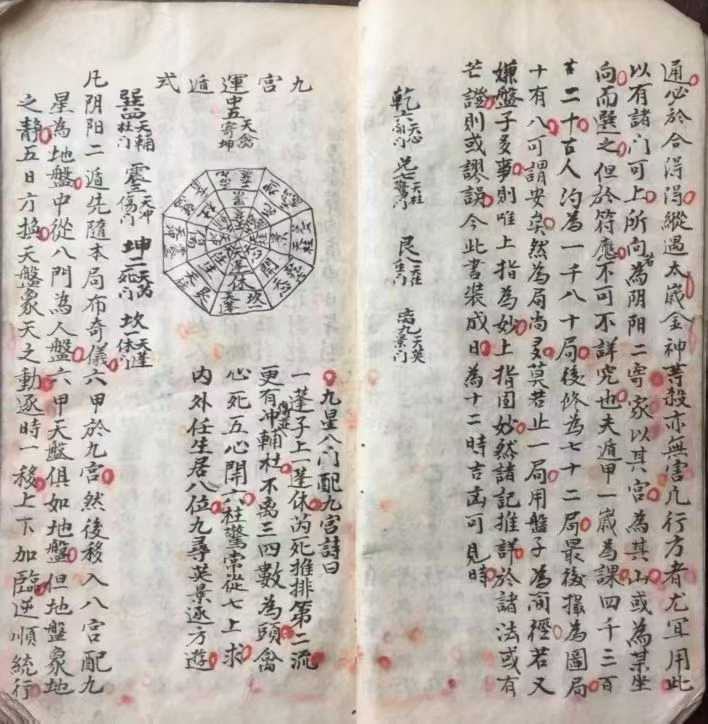 通必於合得得縱遇太歲金神等殺亦無害凡行方者尤宜用此
以有諸门可上所向若為阴阳二寄家以其宫為其山或為某坐
向而選之但於符應不可不詳究也夫遁甲一歲為課四千三百
二十古人約為一千八十局後修為七十二局最後撮為圖局
十有八可謂安矣然為局尚多莫若止一局用盤子為简徑若又
嫌盤子多事則唯上指為妙上指固妙然諸記推詳於諸法或有
芒證則或謬誤今此書装成日為十二時吉凶可見時
乾六 天心 開门 兑七 天柱 驚门 艮 天任 生门 离九 天英 景门
九宫運遁式
中五 天禽 寄坤
巽 天輔 杜门 震三 天冲 傷门 坤二 天芮 死门 坎一 天蓬 休门
九星八门配九宫詩曰
一蓬子上一蓬休芮死推排第二流
更有冲輔杜不离三四數為頭禽
心死五心開六柱驚常從七上求
内外任生居八位九尋英景逐方遊
凡阴阳二遁先隨本局布奇儀六甲於九宫然後移入八宫配九
星為地盤中從八门為人盤六甲天盤俱如地盤但地盤象地
之静五日方换天盤象天之動逐時一移上下加臨逆順統行